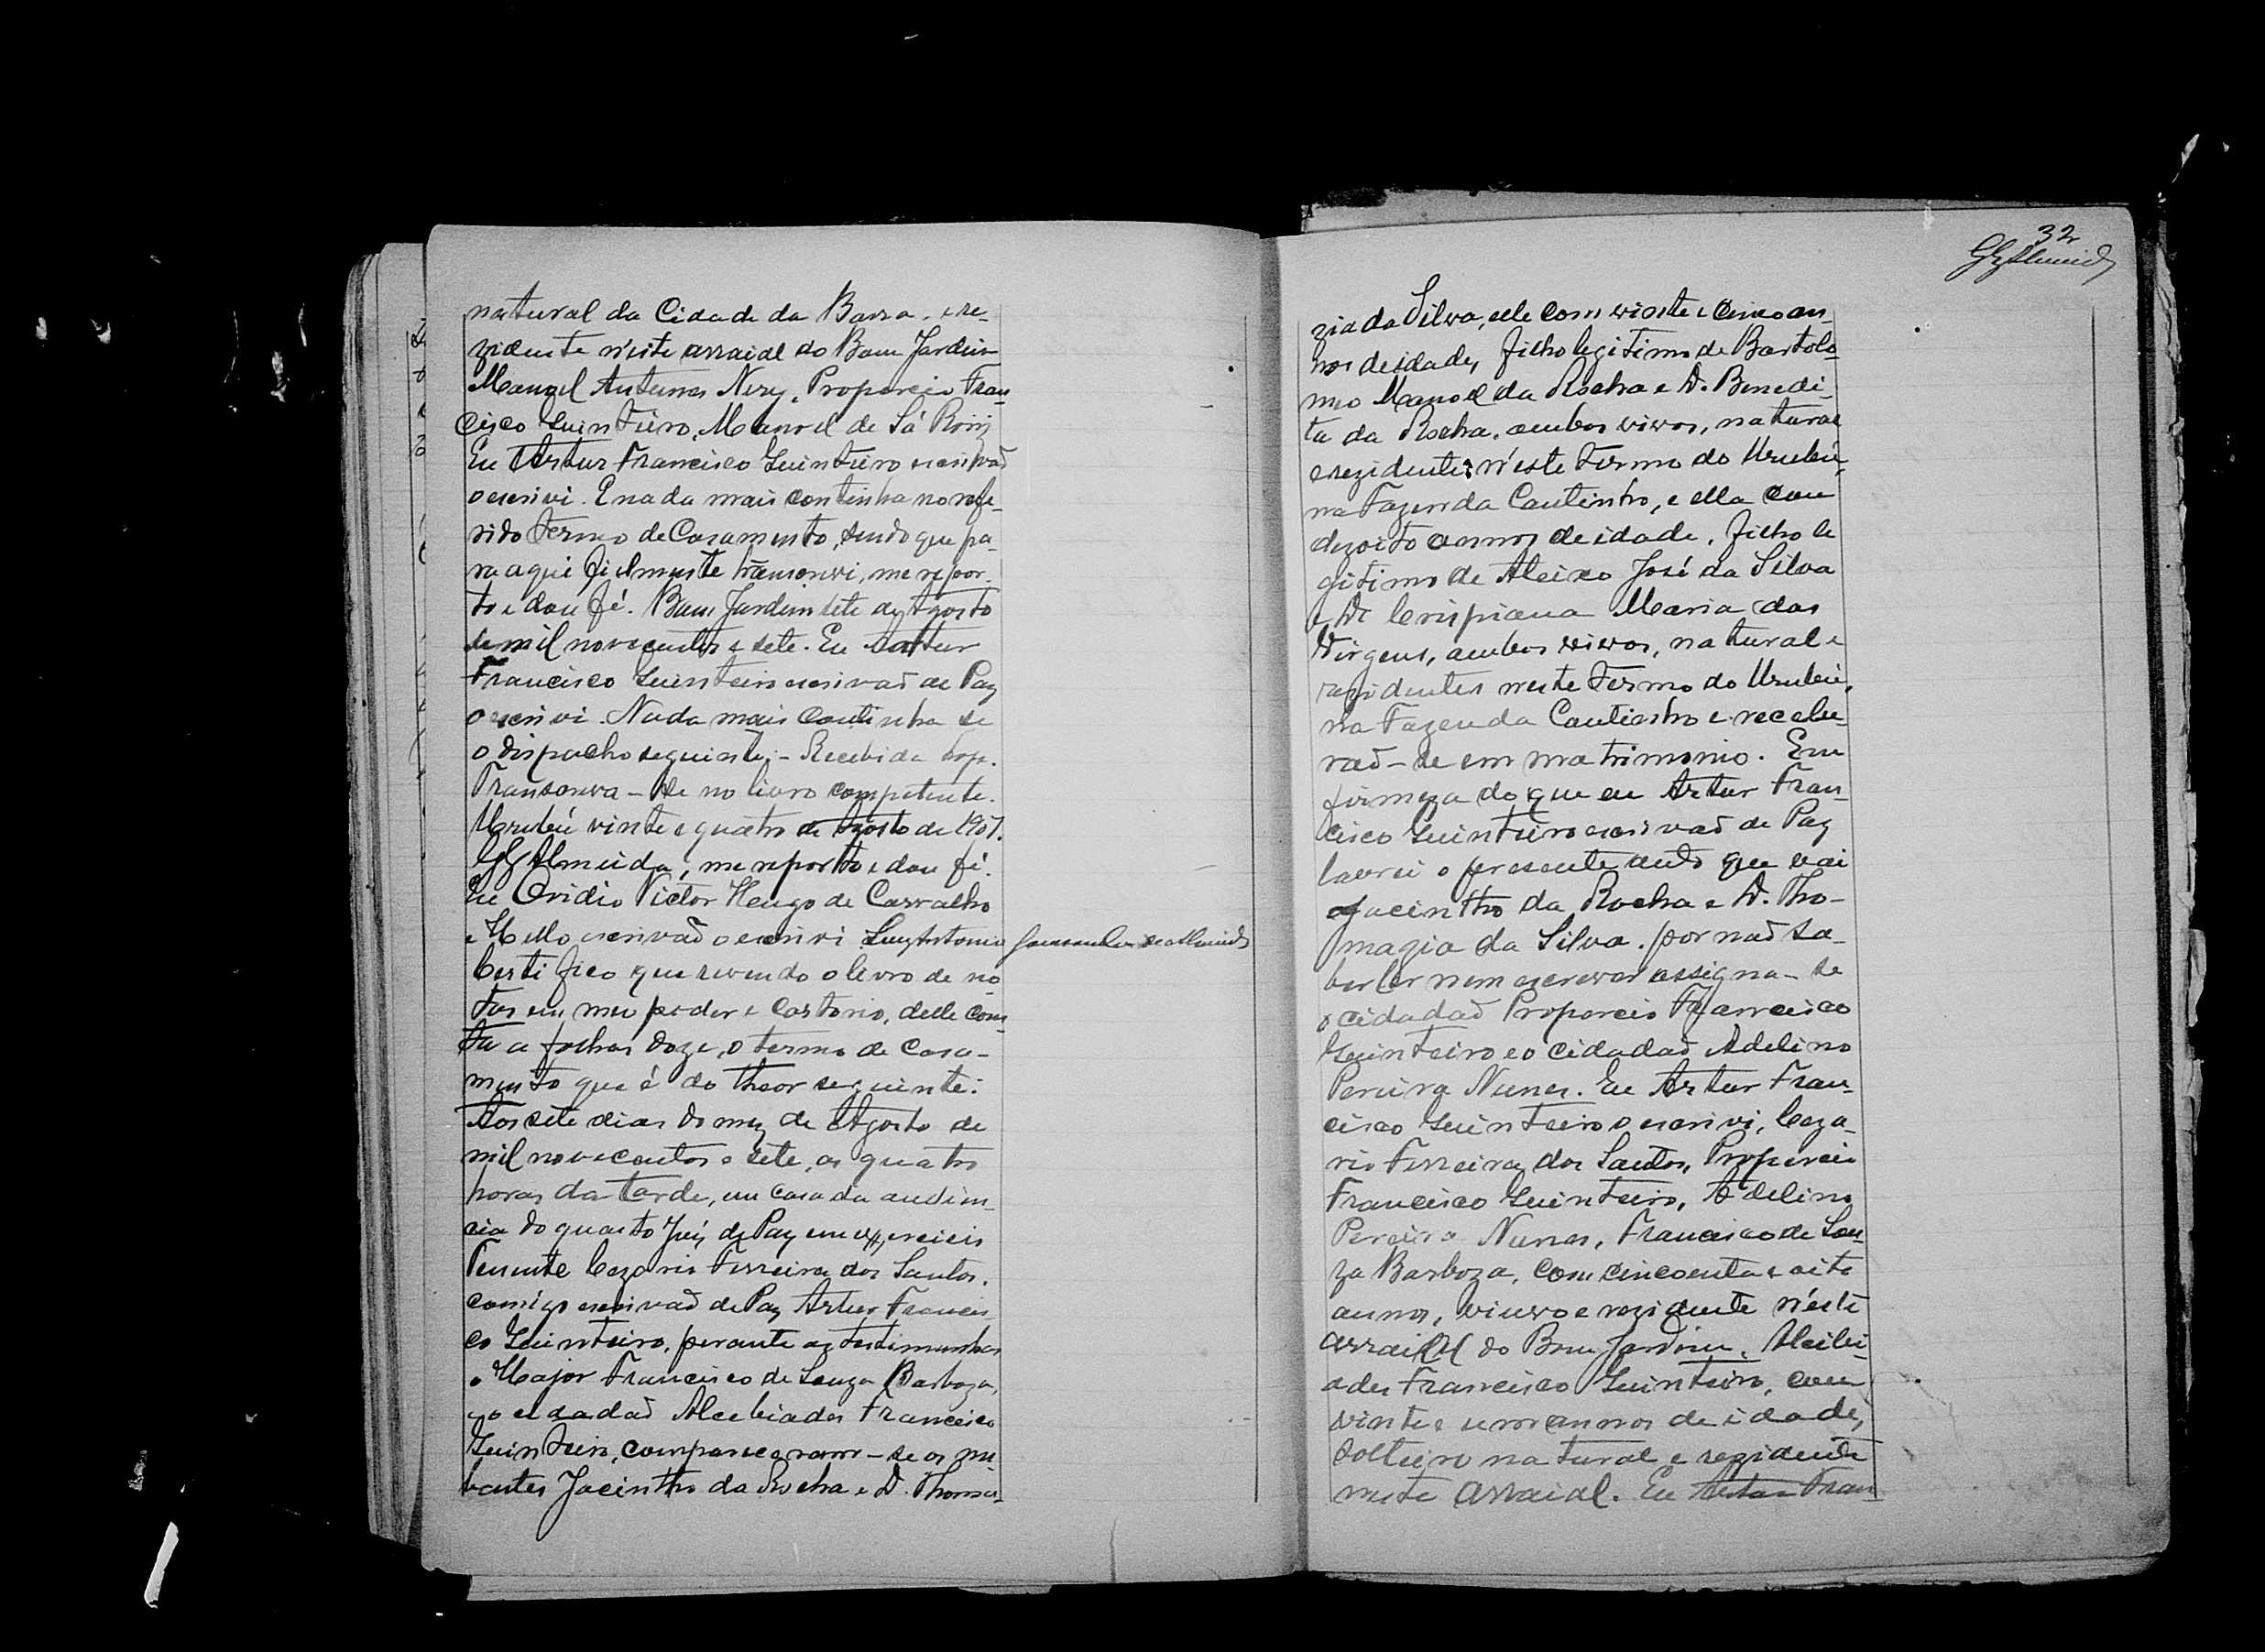 natural da Cidade da Barra. e re-
zidente n'este arraial do Bom Jardim
Manoel Antunes Nery, Proporcio Fran-
cisco Guinteiro, Manoel de Sá Roriz
Eu Artur Francisco Guinteiro escrivaõ
o escrivi. E nada mais continha no refe-
rido termo de Casamento, sendo que pa-
ra aqui fielmente transcrivi, me repor-
to e dou fé. Bom Jardim sete de Agosto
de mil novecentos e sete. Eu Artur
Francisco Guinteiro escrivaõ de Paz
o escrivi. Nada mais continha se
o dispacho seguinte:- Recebida hoje.
Transcriva-se no livro competente.
Urubú vinte e quatro de Agosto de 1907.
Almeida, me reporto e dou fé.
Eu Ovidio Victor Hugo de Carvalho
e Mello escrivaõ o escrivi Luiz Antonio de Almeida
Certifico que revendo o livro de no-
tas em meu poder e Cartorio, delle cons-
ta a folhas doze, o termo de Casa-
mento que é do theor seguinte:
Aos sete dias do mez de Agosto de
mil novecentos e sete, as quatro
horas da tarde, em casa da audien-
cia do quarto Juiz de Paz em exercicio
Tenente Cezario Ferreira dos Santos.
comigo escrivaõ de Paz Artur Francis-
co Guinteiro, perante as testimunhas
o Major Francisco de Souza Barboza,
e o cidadaõ Alcebiades Francisco
Guinteiro, compareceram-se os nu-
bentes Jacintho da Rocha e D. Thoma-
32
Almeida
zia da Silva, elle com vinte e cinco an-
nos de idade, filho legitimo de Bartolo-
meo Manoel da Rocha e D. Benedi-
ta da Rocha. ambos vivos, natural
e rezidentes n'este termo do Urubú,
na Fazenda Cantinho, e ella com
dezoito annos de idade. filho le
gitimo de Aleixo José da Silva
e D. Crispiana Maria das
Virgens, ambos vivos, natural e
rezidentes neste termo do Urubú,
na Fazenda Cantinho e recebe-
raõ-se em matrimonio. Em
firmeza do que eu Artur Fran-
cisco Guinteiro escrivaõ de Paz
lavrei o presente auto que vai
Jacintho da Rocha e D. Tho-
mazia da Silva. por naõ sa-
ber ler nem escrever assigna-se
o cidadaõ Proporcio Francisco
Guinteiro e o cidadaõ Adelino
Pereira Nunes. Eu Artur Fran-
cisco Guinteiro o escrivi, Ceza-
rio Ferreira dos Santos, Proporcio
Francisco Guinteiro, Adelino
Pereira Nunes, Francisco de Sou-
za Barboza, com cincoenta e oito
annos, viuvo e rezidente n'este
arraial do Bom Jardim, Alcibi-
ades Francisco Guinteiro, com
vinte e um annos de idade,
solteiro natural e rezidente
neste arraial. Eu Artur Fran